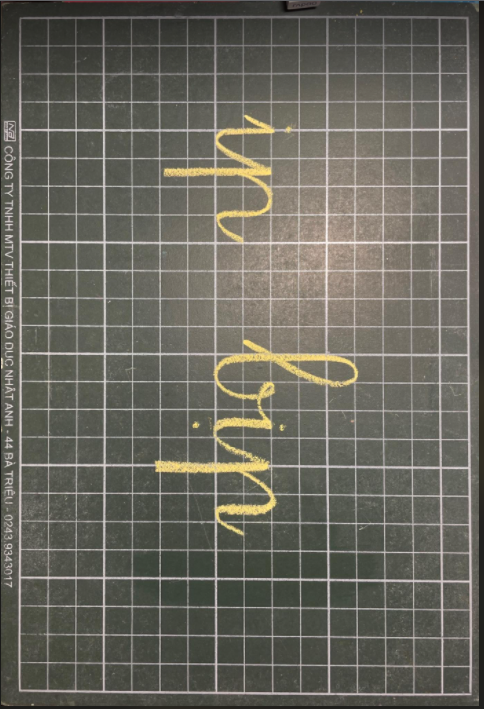 ip bịp
CÔNG TY TNHH MTV THIẾT BỊ GIÁO DỤC NHẬT ANH - 44 BÀ TRIỆU - 0243.9343017